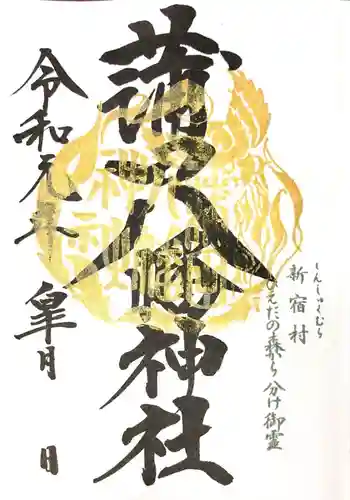 しんしゅくむら
新宿村
ひえだの森から分け御霊
蒲田八幡神社
令和元年皐月 日